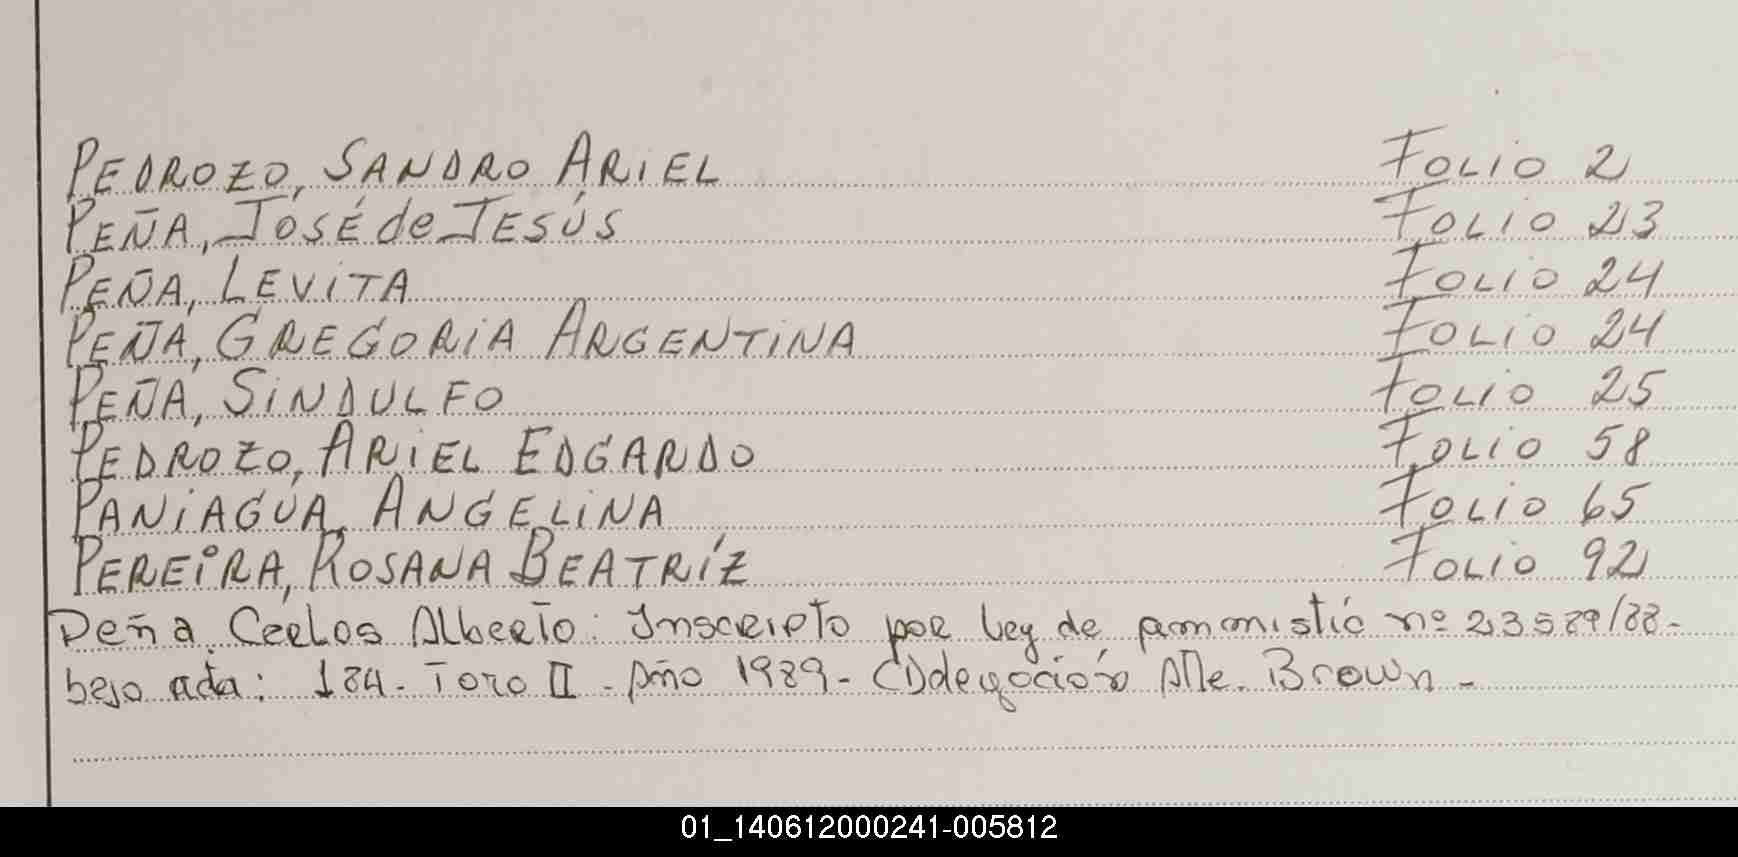 PEDROZO, SANDRO ARIEL Folio 2
PEÑA, JOSÉ de JESÚS Folio 23
PEÑA, LEVITA Folio 24
PEÑA, GREGORIA ARGENTINA Folio 24
PEÑA, SINDULFO Folio 25
PEDROZO, ARIEL EDGARDO Folio 58
PANIAGUA, ANGELINA Folio 65
PEREIRA, ROSANA BEATRÍZ Folio 92
Peña, Carlos Alberto: Inscripto por Ley de Ammistía nº
bajo acta: 184- Tomo II - Año 1989- (Delegación Alte. Brown -
01_140612000241-005812